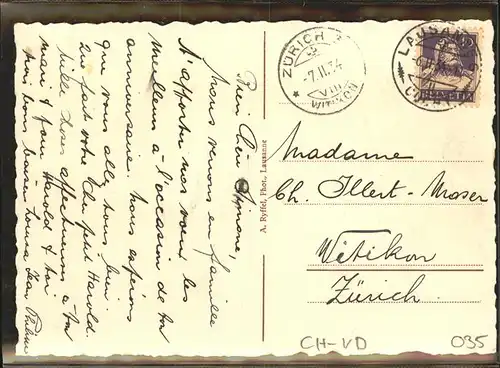 Bien chère Simone,
Nous venons en famille
t'apporter nos vœux les
meilleurs à l'occasion de ton
anniversaire. Nous espérons
que vous allez tous bien
que votre petit Harold.
Mille choses affectueuses à ton
mari & petit Harold & toi
mes bons baisers
A. Ryffel, Phot., Lausanne
ZÜRICH 3
-7.II.34
VIII
WIEDIKON
LAUSANNE
HELVETIA
Madame
Ch. Illert-Moser
Wetikon
Zürich
CH-VD 035